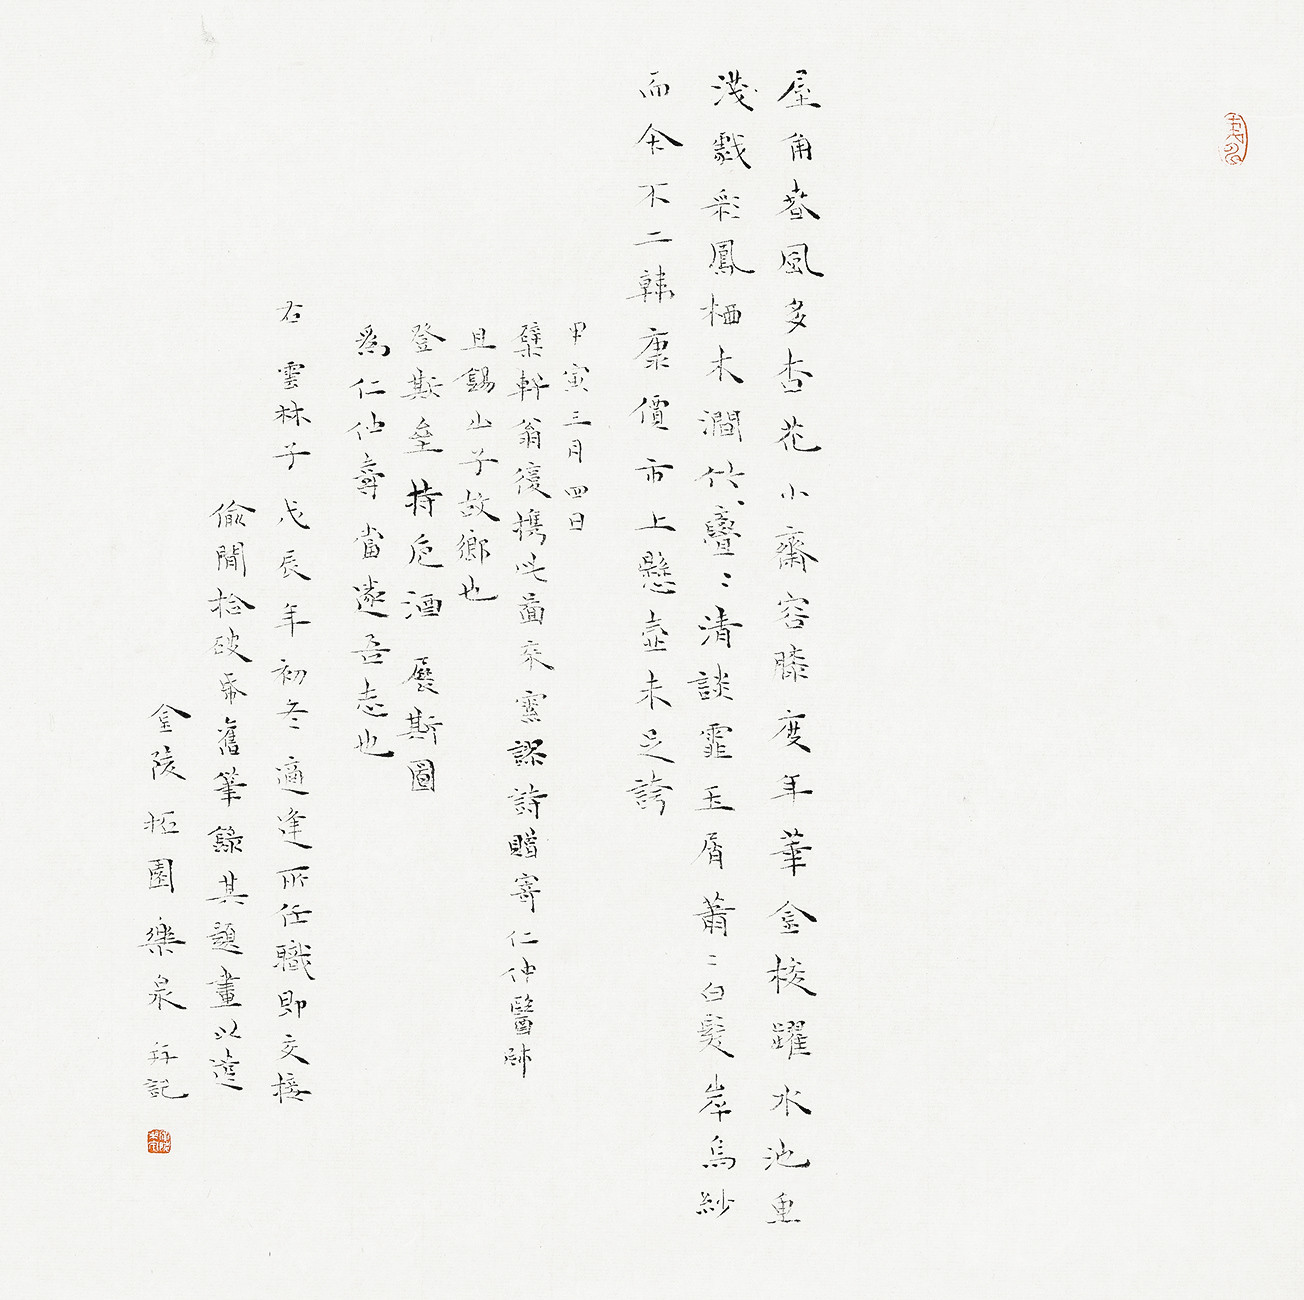 屋角春風多杏花小齋容膝度年華金梭躍水池
戲彩鳳栖木澗竹亹〻清談霏玉屑蕭〻白髮岸烏紗
而今不二韓康價市上懸壺未足誇
甲寅三月四日
檗軒翁復攜此圖來索謬詩贈寄仁仲醫師
且錫山予故鄉也
登斯持巵酒展斯圖
為仁仲壽當遂吾志也
右雲林子戊辰年初冬適逢所任職即交接
偷閒拾破帋舊筆錄其題畫以遣
金陵拓園樂泉并記